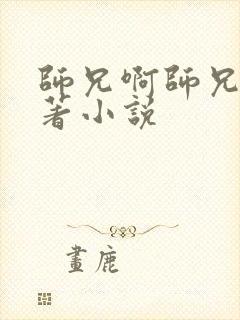 師兄啊師兄
著小説
畫鹿